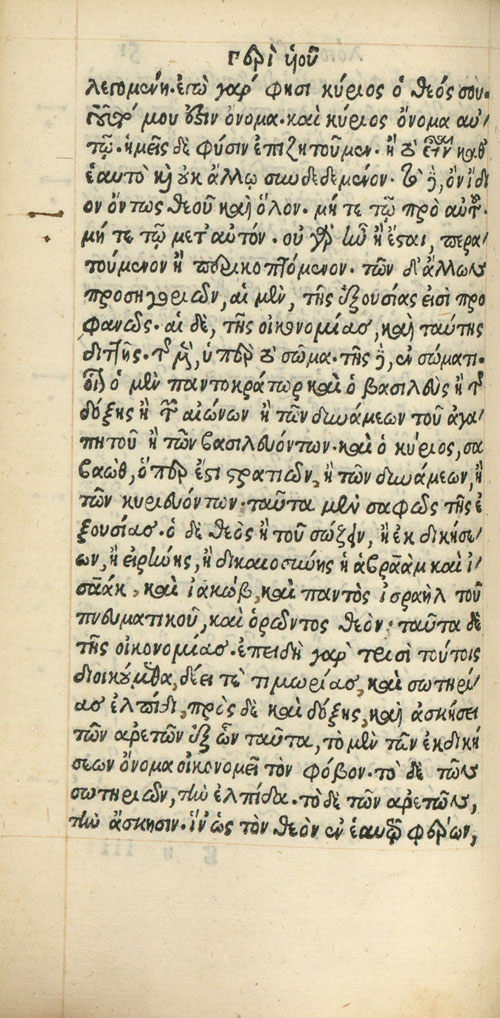 περὶ υἱοῦ
λεγομένη. ἐγὼ γάρ φησι κύριος ὁ θεός σου.
τοῦτό μου ἐστὶν ὄνομα. καὶ κύριος ὄνομα αὐ
τῷ. ἡμεῖς δὲ φύσιν ἐπιζητοῦμεν. ᾗ τὸ εἶναι καθ'
ἑαυτὸ καὶ οὐκ ἄλλῳ συνδεδεμένον. τὸ δὲ ὂν ἴδι
ον ὄντως θεοῦ καὶ ὅλον. μήτε τῷ πρὸ αὐτοῦ.
μήτε τῷ μετ' αὐτόν. οὐ γὰρ ἦν ἢ ἔσται, περα
τούμενον ἢ περικοπτόμενον. τῶν δ' ἄλλων
προσηγοριῶν, αἱ μὲν, τῆς ἐξουσίας εἰσὶ προ
φανῶς. αἱ δὲ, τῆς οἰκονομίας, καὶ ταύτης
διττῆς. τῆς μὲν, ὑπὲρ τὸ σῶμα. τῆς δὲ, ἐν σώματι.
ὁ μὲν παντοκράτωρ καὶ ὁ βασιλεὺς ἢ τῆς
δόξης ἢ τῶν αἰώνων ἢ τῶν δυνάμεων τοῦ ἀγα
πητοῦ ἢ τῶν βασιλευόντων. καὶ ὁ κύριος, σα
βαὼθ, ὅπερ ἐστὶ στρατιῶν, ἢ τῶν δυνάμεων, ἢ
τῶν κυριευόντων. ταῦτα μὲν σαφῶς τῆς ἐ
ξουσίας. ὁ δὲ θεὸς ἢ τοῦ σώζειν, ἢ ἐκδικήσε
ων, ἢ εἰρήνης, ἢ δικαιοσύνης ἢ ἀβραὰμ καὶ ἰ
σαάκ, καὶ ἰακώβ, καὶ παντὸς ἰσραὴλ τοῦ
πνευματικοῦ, καὶ ὁρῶντος θεόν. ταῦτα δὲ
τῆς οἰκονομίας. ἐπειδὴ γὰρ τρισὶ τούτοις
διοικούμεθα, δέει τε τιμωρίας, καὶ σωτηρί
ας ἐλπίδι, πρὸς δὲ καὶ δόξης, καὶ ἀσκήσει
τῶν ἀρετῶν ἐξ ὧν ταῦτα, τὸ μὲν τῶν ἐκδική
σεων ὄνομα οἰκονομεῖ τὸν φόβον. τὸ δὲ τῶν
σωτηριῶν, τὴν ἐλπίδα. τὸ δὲ τῶν ἀρετῶν,
τὴν ἄσκησιν. ἵν' ὡς τὸν θεὸν ἐν ἑαυτῷ φέρων,